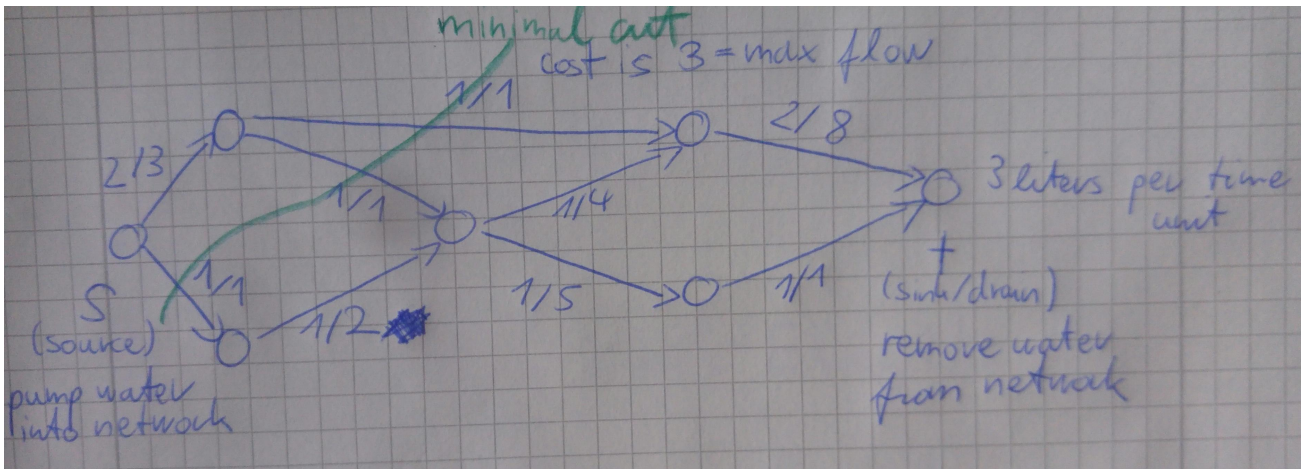 minimal cut
cost is 3 = max flow
1/1
2/8
2/3
1/1
1/4
3 liters per time
unit
1/1
S
(source)
pump water
into network
1/2
1/5
1/1
t
(sink/drain)
remove water
from network